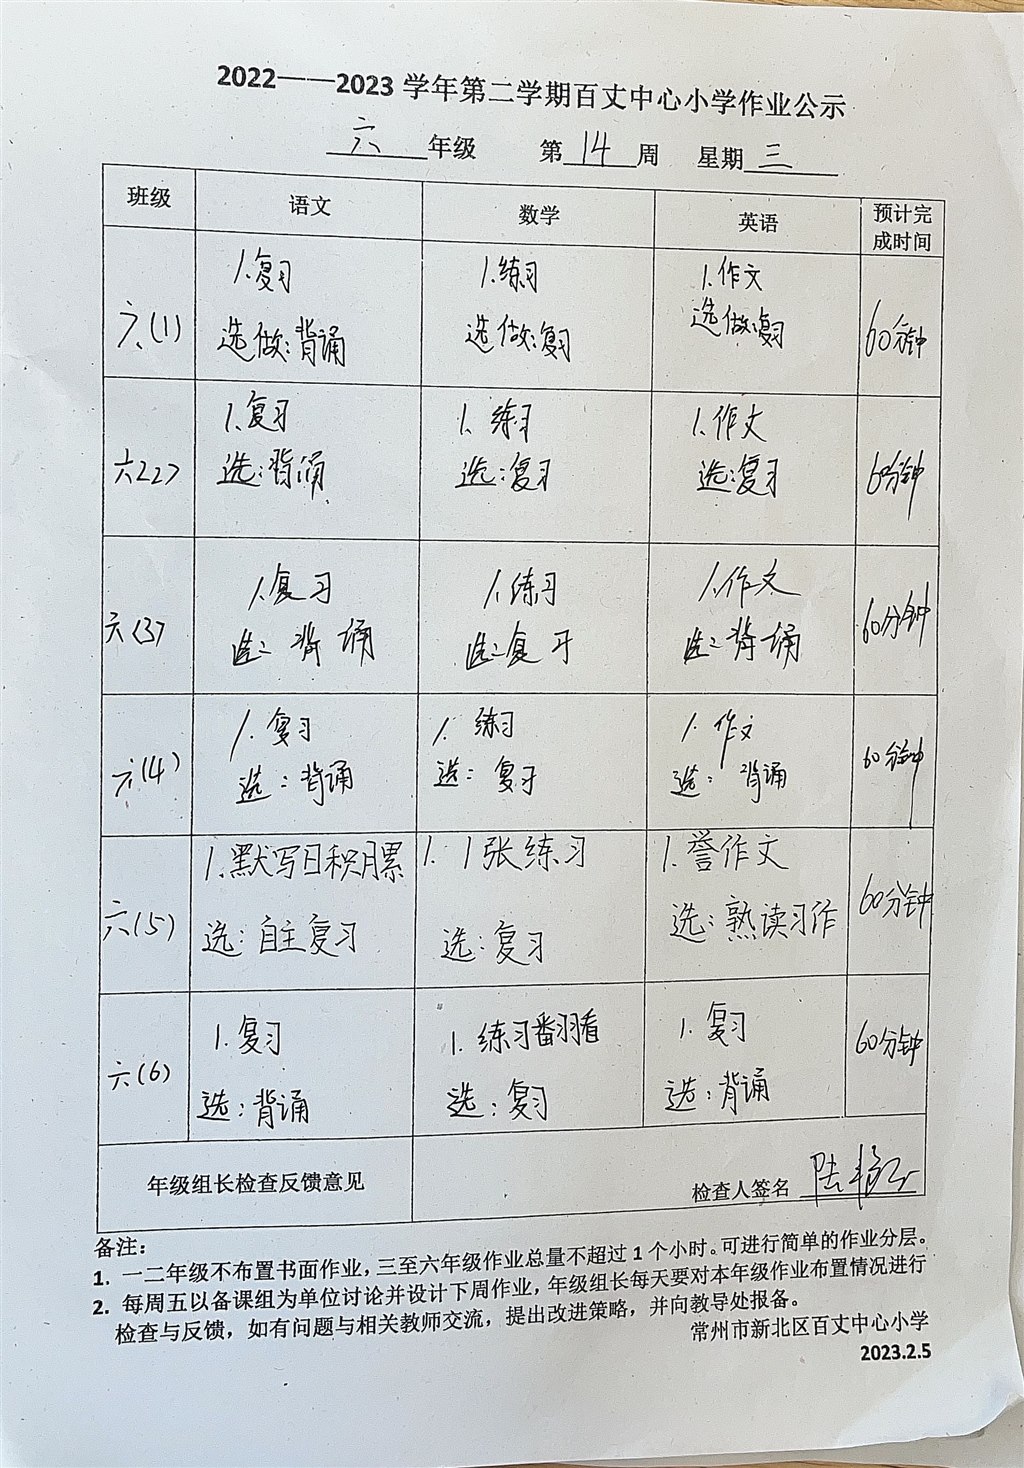 2022——2023 学年第二学期百丈中心小学作业公示
六 年级 第 14 周 星期 三
班级 语文 数学 英语 预计完成时间
六(1) 1.复习 1.练习 1.作文 60分钟
选做:背诵 选做:复习 选做:复习
六<2> 1.复习 1.练习 1.作文 60分钟
选:背诵 选:复习 选:复习
六<3> 1.复习 1.练习 1.作文 60分钟
选:背诵 选:复习 选:背诵
六(4) 1.复习 1.练习 1.作文 60分钟
选:背诵 选:复习 选:背诵
六(5) 1.默写日积月累 1. 1张练习 1.誉作文 60分钟
选:自主复习 选:复习 选:熟读习作
六(6) 1.复习 1.练习翻看 1.复习 60分钟
选:背诵 选:复习 选:背诵
年级组长检查反馈意见 检查人签名 陆
备注:
1. 一二年级不布置书面作业,三至六年级作业总量不超过 1 个小时。可进行简单的作业分层。
2. 每周五以备课组为单位讨论并设计下周作业,年级组长每天要对本年级作业布置情况进行
检查与反馈,如有问题与相关教师交流,提出改进策略,并向教导处报备。
常州市新北区百丈中心小学
2023.2.5